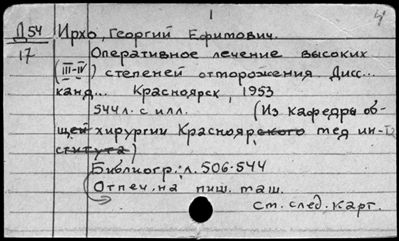 1
Д54 Ирхо, Георгий Ефимович.
17 Оперативное лечение высоких
(III-IV) степеней отморожения Дисс...
канд... Красноярск, 1953
544л. с илл. (Из кафедры об-
щей хирургии Красноярского мед ин-
ститута)
Библиогр: л. 506-544
Отпеч. на пиш. маш.
См. след. карт.